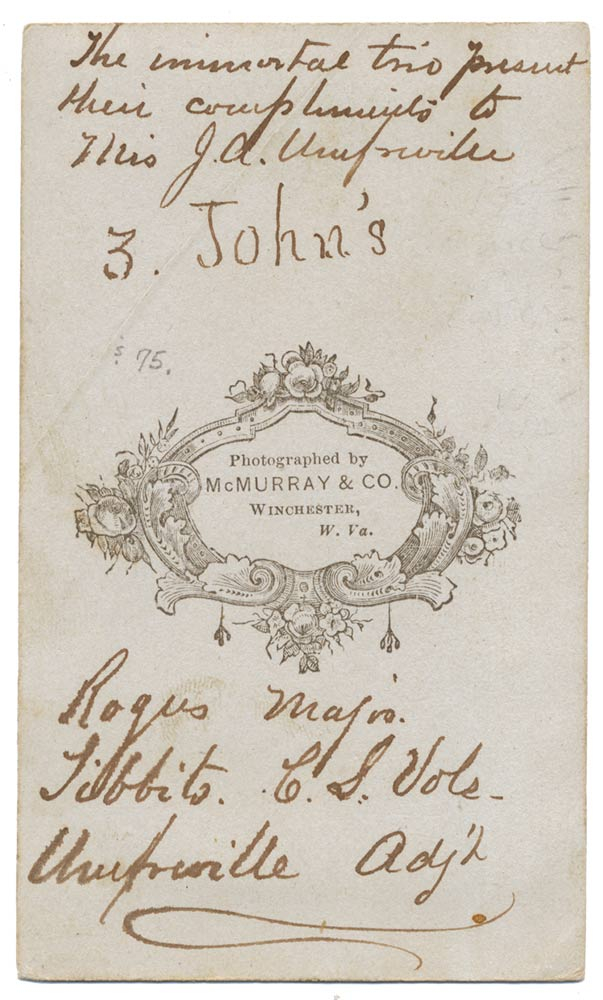 The immortal trio present
their compliments to
Mrs J. A. Umfreville
3. John's
$75.
Photographed by
McMURRAY & CO.
WINCHESTER,
W. Va.
Rogus Major.
Tibbits. C. S. Vols-
Umfreville Adj't